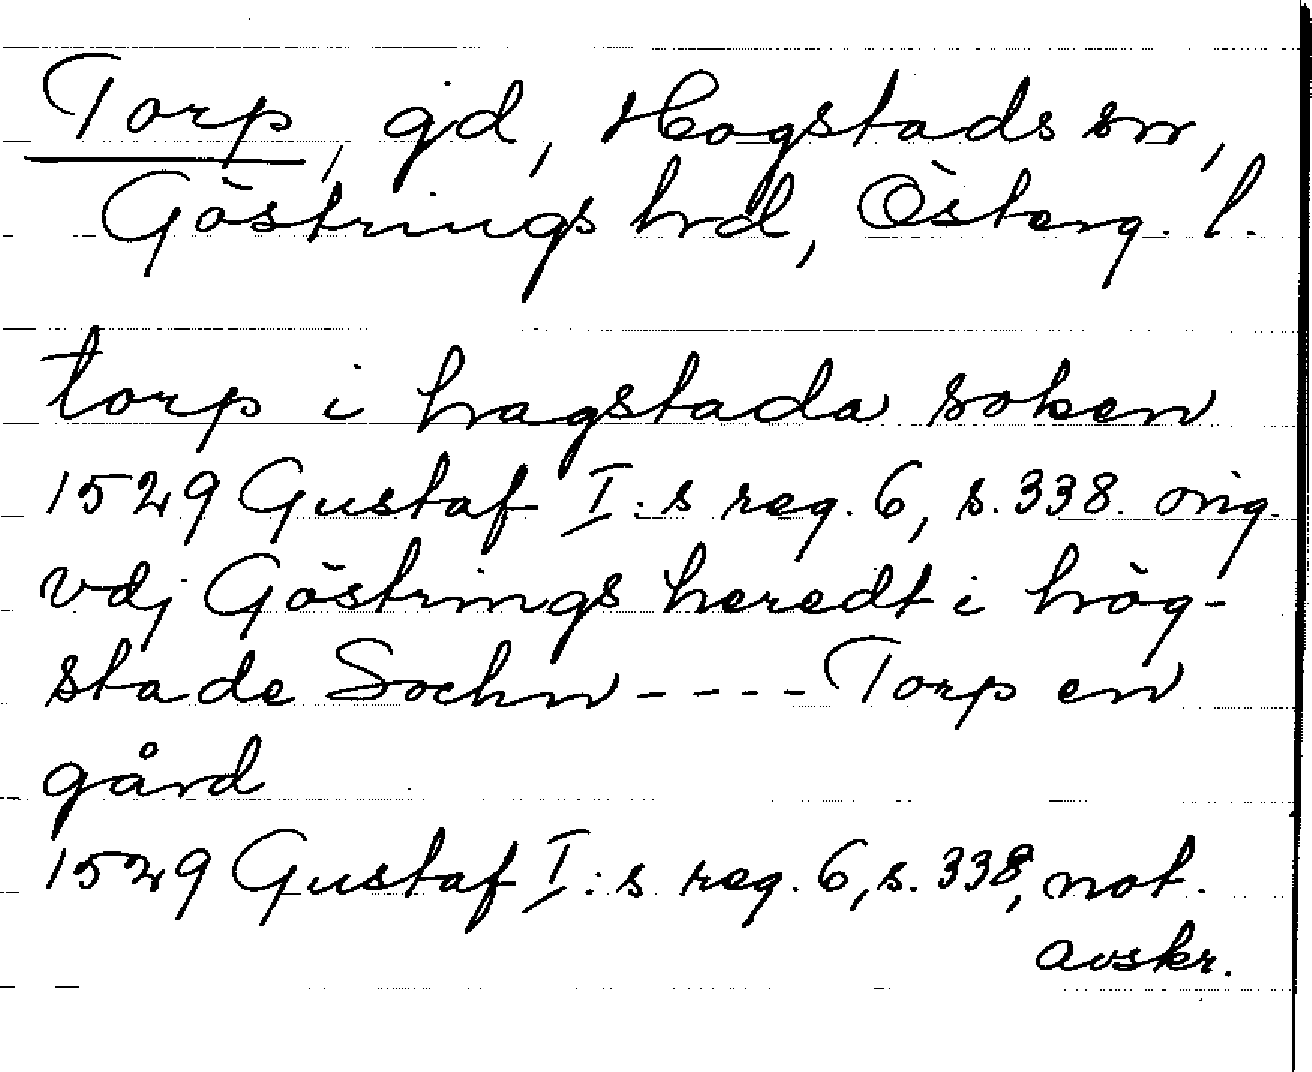 Torp, gd, Hogstads sn,
Göstrings hrd, Österg. l.
torp i hagstada soken
1529 Gustaf I:s reg. 6, s. 338. orig.
vdj Göstrings heredt i hög-
stade Sochn ---- Torp en
gård
1529 Gustaf I:s reg. 6, s. 338, not.
avskr.